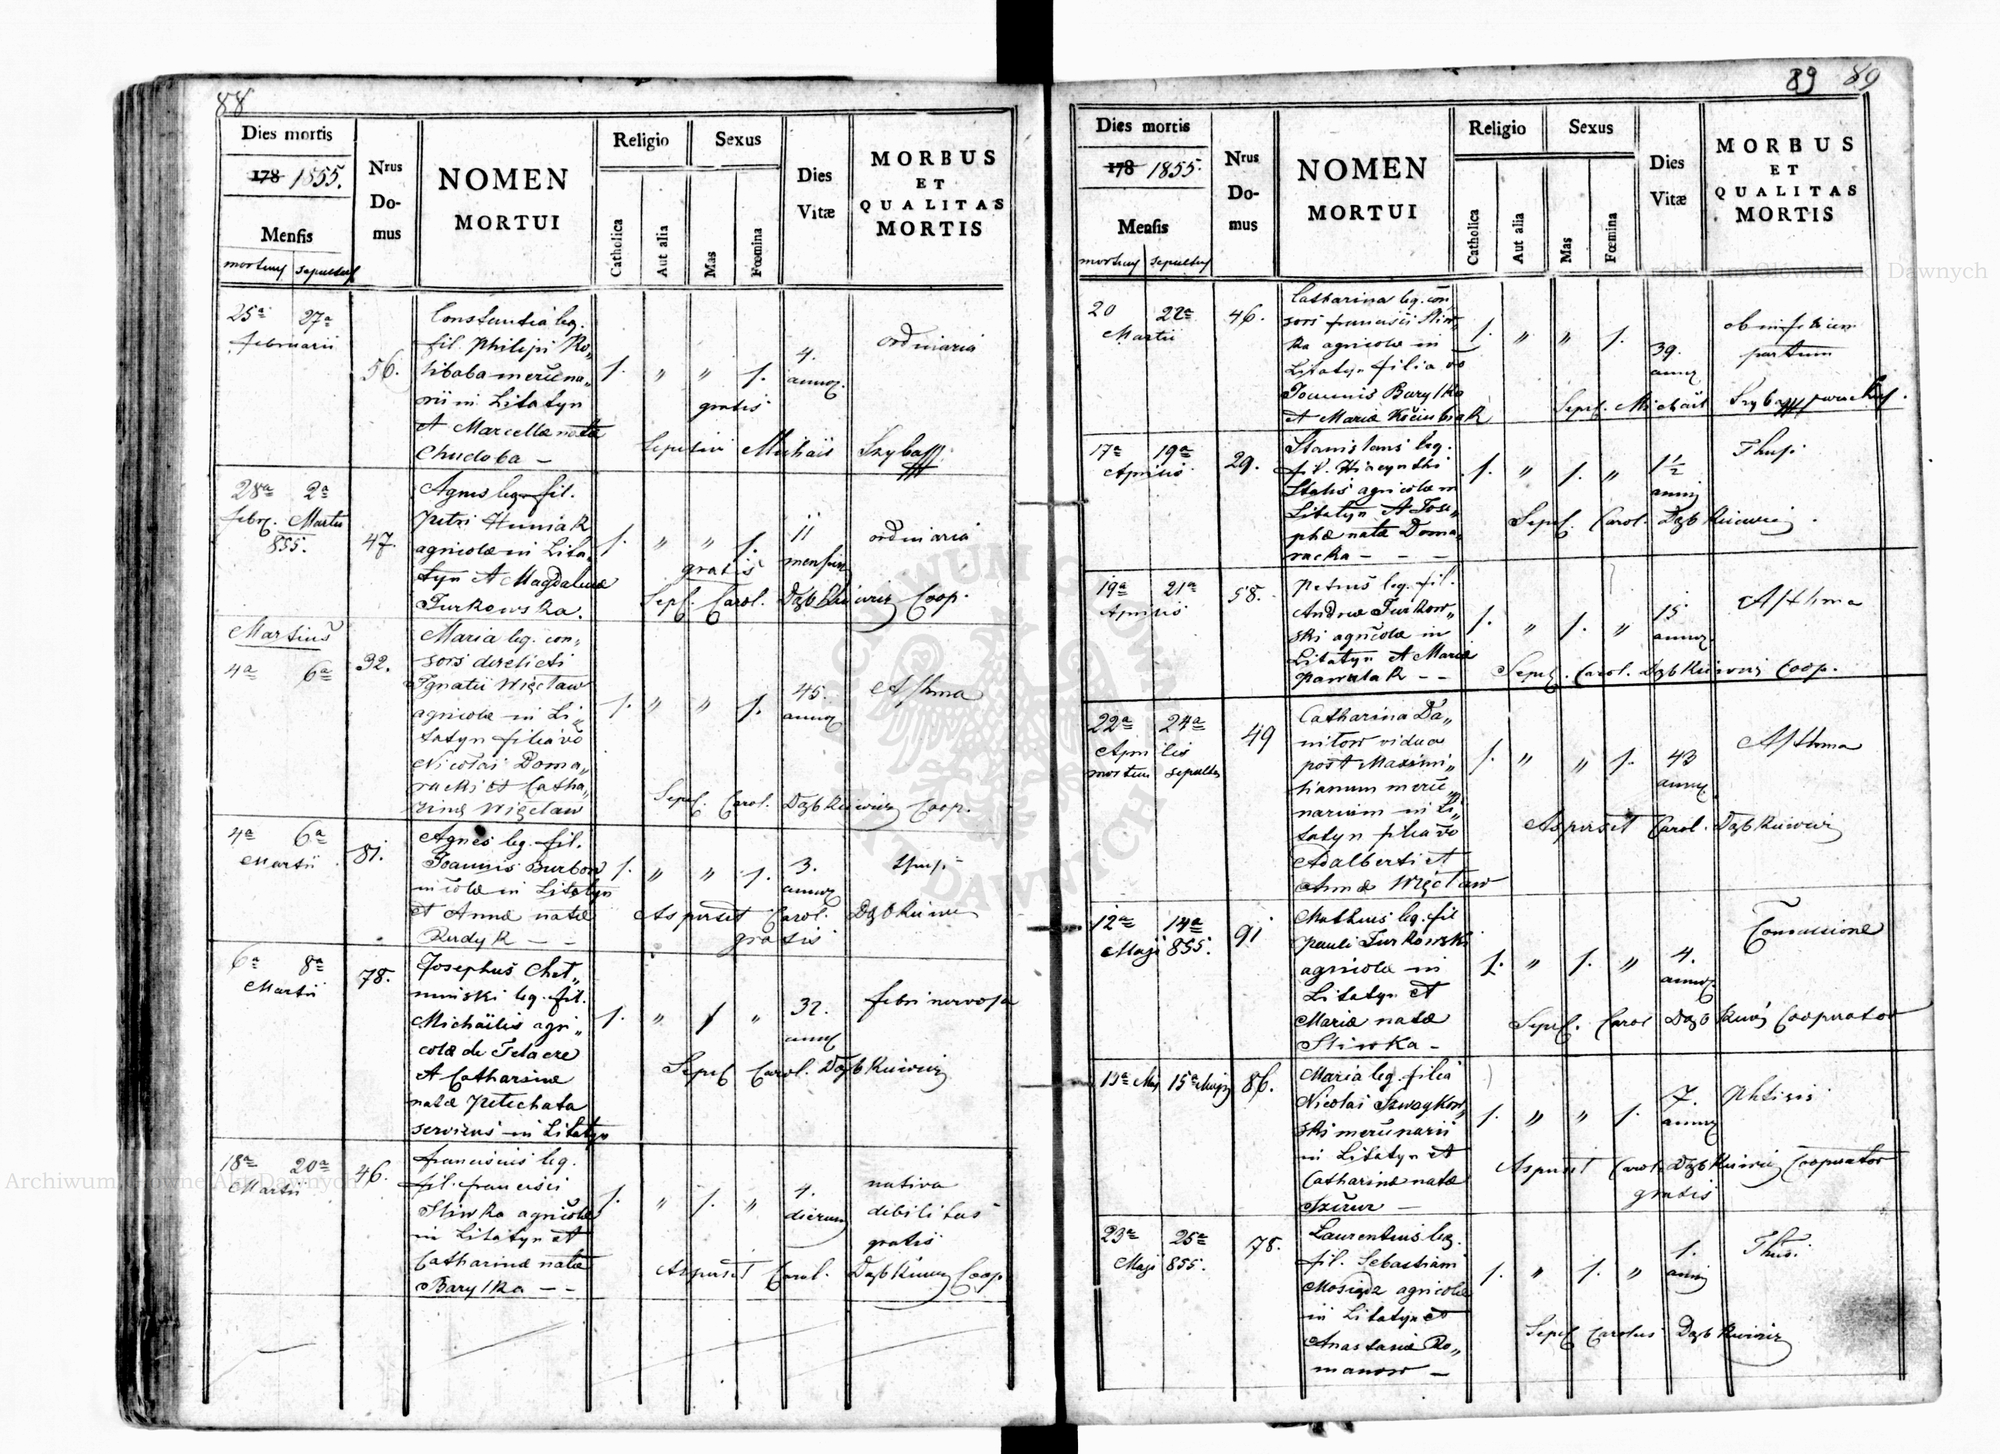 88
Dies mortis
178 1855.
Mensis
mortuus sepultus
Nrus
Do-
mus
NOMEN
MORTUI
Religio
Catholica
Aut alia
Sexus
Mas
Fœmina
Dies
Vitæ
MORBUS
ET
QUALITAS
MORTIS
25a 27a
februarii
56.
Constantia leg.
fil. Philipi Ro„
in Litatyn
et Marcella nata
Chudoba –
1. „ „ 1.
gratis
4.
annor.
ordinaria
Sepelivi Michael Szyba
28a 2a
febr. Martii
855.
47.
Agnes leg. fil.
Petri Huniak
agricolæ in Lita„
tyn et Magdalenæ
Turkowska.
1. „ „ 1.
gratis
11
mensium
ordinaria
Sepel. Carol. Dąbkiewicz Coop.
Martius
4a 6a
32.
Maria leg. con„
sors derelicti
Ignatii Więcław
agricolæ in Li„
tatyn filia vo
Nicolai Doma„
racki et Catha„
rinæ Więcław
1. „ „ 1.
45.
annor
Asthma
Sepel. Carol. Dąbkiewicz Coop.
4a 6a
Martii
81.
Agnes leg. fil.
Joannis Burbow
in Litatyn
et Annæ natæ
Rudyk – –
1. „ „ 1.
3.
annor
thusi
Aspersit Carol. Dąbkiewicz
gratis
6a 8a
Martii
78.
Josephus Chet„
minski leg. fil.
Michaëlis agri„
colæ de Telacze
et Catharinæ
natæ Petechata
serviens in Litatyn
1. „ 1 „
32.
annor
febri nervosa
Sepel Carol. Dąbkiewicz
18a 20a
Martii
46.
franciscus leg.
fil. francisci
Sliwka agricolæ
in Litatyn et
Catharinæ natæ
Barylka – –
1. „ 1. „
4.
dierum
nativa
debilitas
gratis
Aspersit Carol. Dąbkiewicz Coop.
89 89
Dies mortis
178 1855.
Mensis
mortuus sepultus
Nrus
Do-
mus
NOMEN
MORTUI
Religio
Catholica
Aut alia
Sexus
Mas
Fœmina
Dies
Vitæ
MORBUS
ET
QUALITAS
MORTIS
20 22a
Martii
46.
Catharina leg. con
sors francisci Sliw„
ka agricolæ in
Litatyn filia vo
Joannis Barylka
et Maria Kociubiak
1. „ „ 1.
39.
annor
ob infelicem
partum
Sepel. Michael Szyba
17a 19a
Aprilis
29.
Stanislaus leg.
fil. Hiacynthi
agricolæ in
Litatyn et Jose„
phæ natæ Doma„
racka – – –
1. „ 1. „
1½
anni
Thusi
Sepel. Carol. Dąbkiewicz.
19a 21a
Aprilis
58.
Petrus leg. fil.
Andreæ Turkow„
ski agricolæ in
Litatyn et Maria
Pawlak – –
1. „ 1. „
15
annor
Asthma
Sepel. Carol. Dąbkiewicz Coop.
22a 24a
Aprilis
mortuus sepultus
49
Catharina Da„
nilow vidua
post Maximi„
lianum merce„
narium in Li„
tatyn filia vo
Adalberti et
Annæ Więcław
1. „ „ 1.
43
annor
Asthma
Aspersit Carol. Dąbkiewicz
12a 14a
Maji 855.
91
Matheus leg. fil
Pauli Turkowski
agricolæ in
Litatyn et
Mariæ natæ
Sliwka –
1. „ 1. „
4.
annor
Concussione
Sepel. Carol Dąbkiewicz Cooperator
13a Maj 15a Maji
86.
Maria leg. filia
Nicolai Szwaykow„
ski mercenarii
in Litatyn et
Catharinæ natæ
1. „ „ 1.
7.
annor
Phtisis
Aspersit Carol. Dąbkiewicz Cooperator
gratis
23a 25a
Maji 855.
78.
Laurentius leg.
fil. Sebastiani
Mosiądz agricolæ
in Litatyn et
Anastasiæ Ro„
manow –
1. „ 1. „
1.
anni
Thusi
Sepel Carolus Dąbkiewicz
Archiwum Główne Akt Dawnych
Archiwum Główne Akt Dawnych
ARCHIWUM GŁÓWNE AKT DAWNYCH